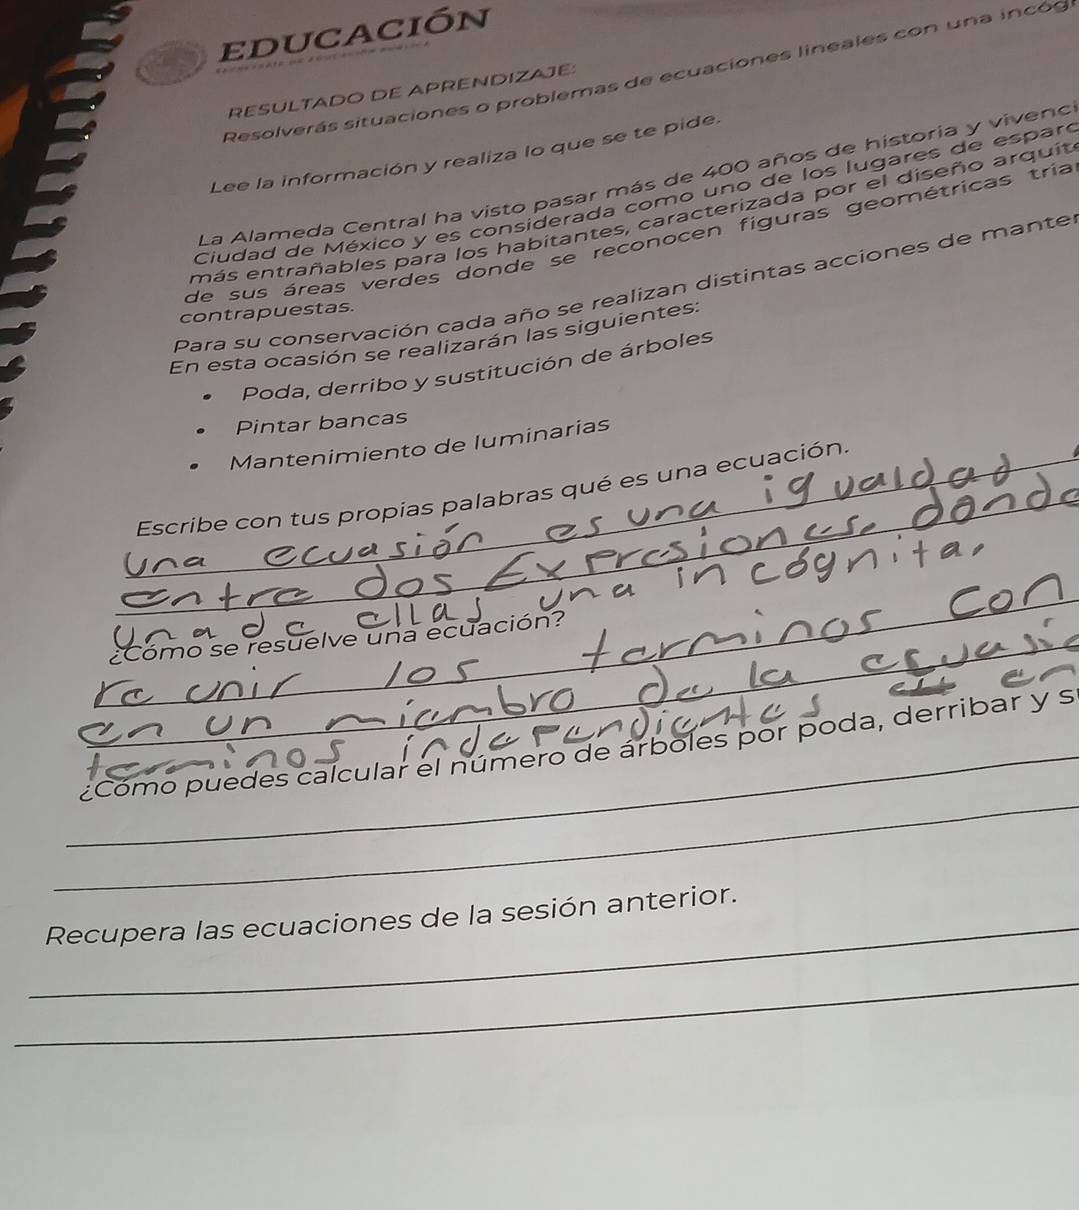 EDUCACIÓN
RESULTADO DE APRENDIZAJE:
Resolverás situaciones o problemas de ecuaciones lineales con una incóg
Lee la información y realiza lo que se te pide.
La Alameda Central ha visto pasar más de 400 años de historia y vivenci
Ciudad de México y es considerada como uno de los lugares de esparc
más entrañables para los habitantes, caracterizada por el diseño arquit
de sus áreas verdes donde se reconocen figuras geométricas tria
contrapuestas.
Para su conservación cada año se realizan distintas acciones de manter
En esta ocasión se realizarán las siguientes:
• Poda, derribo y sustitución de árboles
• Pintar bancas
• Mantenimiento de luminarias
Escribe con tus propias palabras qué es una ecuación.
una ecuasión es una igualdad
entre dos Expresiones. donde
una de ellas una incógnita.
¿Cómo se resuelve una ecuación?
re unir los terminos con
en un miembro de la
terminos independientes en
¿Cómo puedes calcular el número de árboles por poda, derribar y s
Recupera las ecuaciones de la sesión anterior.